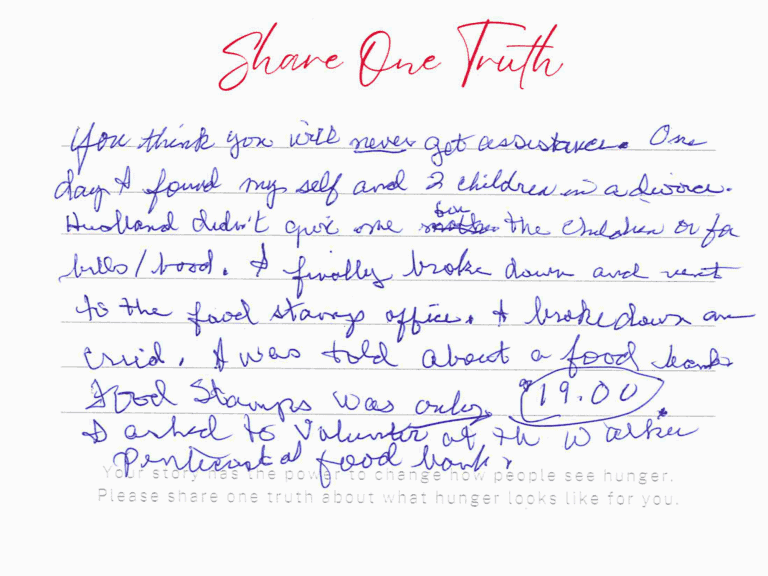 Share One Truth
You think you will never get assistance. One
day I found my self and 2 children in a divorce.
Husband didn't give me for the children or for
bills/food. I finally broke down and went
to the food stamps office. I broke down an
cried. I was told about a food bank
Food Stamps was only $19.00.
I asked to volunter at th Walker
Penticostal food bank.
Your story has the power to change how people see hunger.
Please share one truth about what hunger looks like for you.